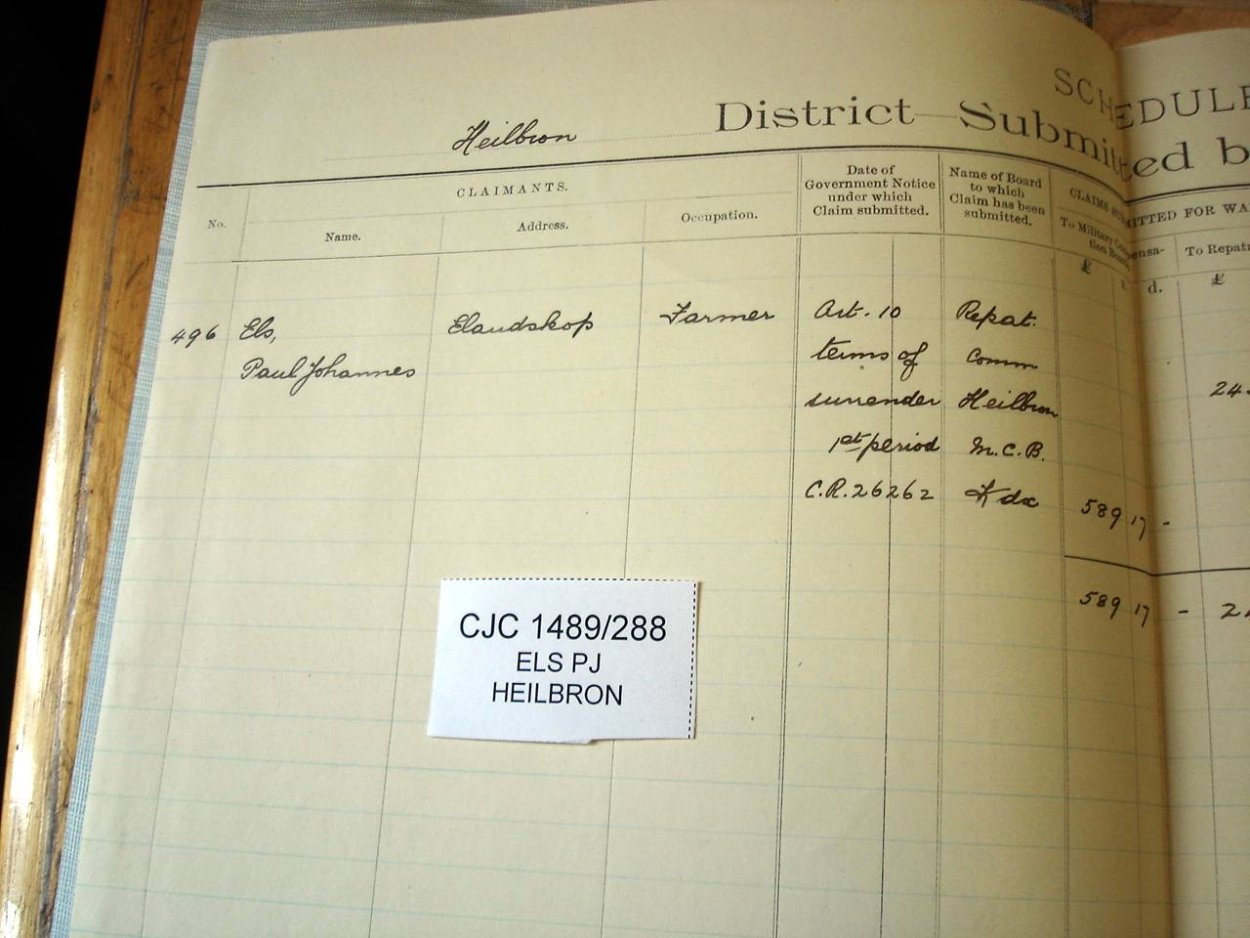 SCHEDULE
Heilbron District Submitted b
CLAIMANTS.
No.
Name.
Address.
Occupation.
Date of
Government Notice
under which
Claim submitted.
Name of Board
to which
Claim has been
submitted.
CLAIMS
MITTED FOR WA
To Military
ensa-
To Repatr
£
d.
£
496 Els, Elandskop Farmer Art. 10 Repat.
Paul Johannes terms of Comm
surrender Heilbron
24
1st period M.C.B.
C.R. 26262
589 17 -
589 17 - 2
CJC 1489/288
ELS PJ
HEILBRON